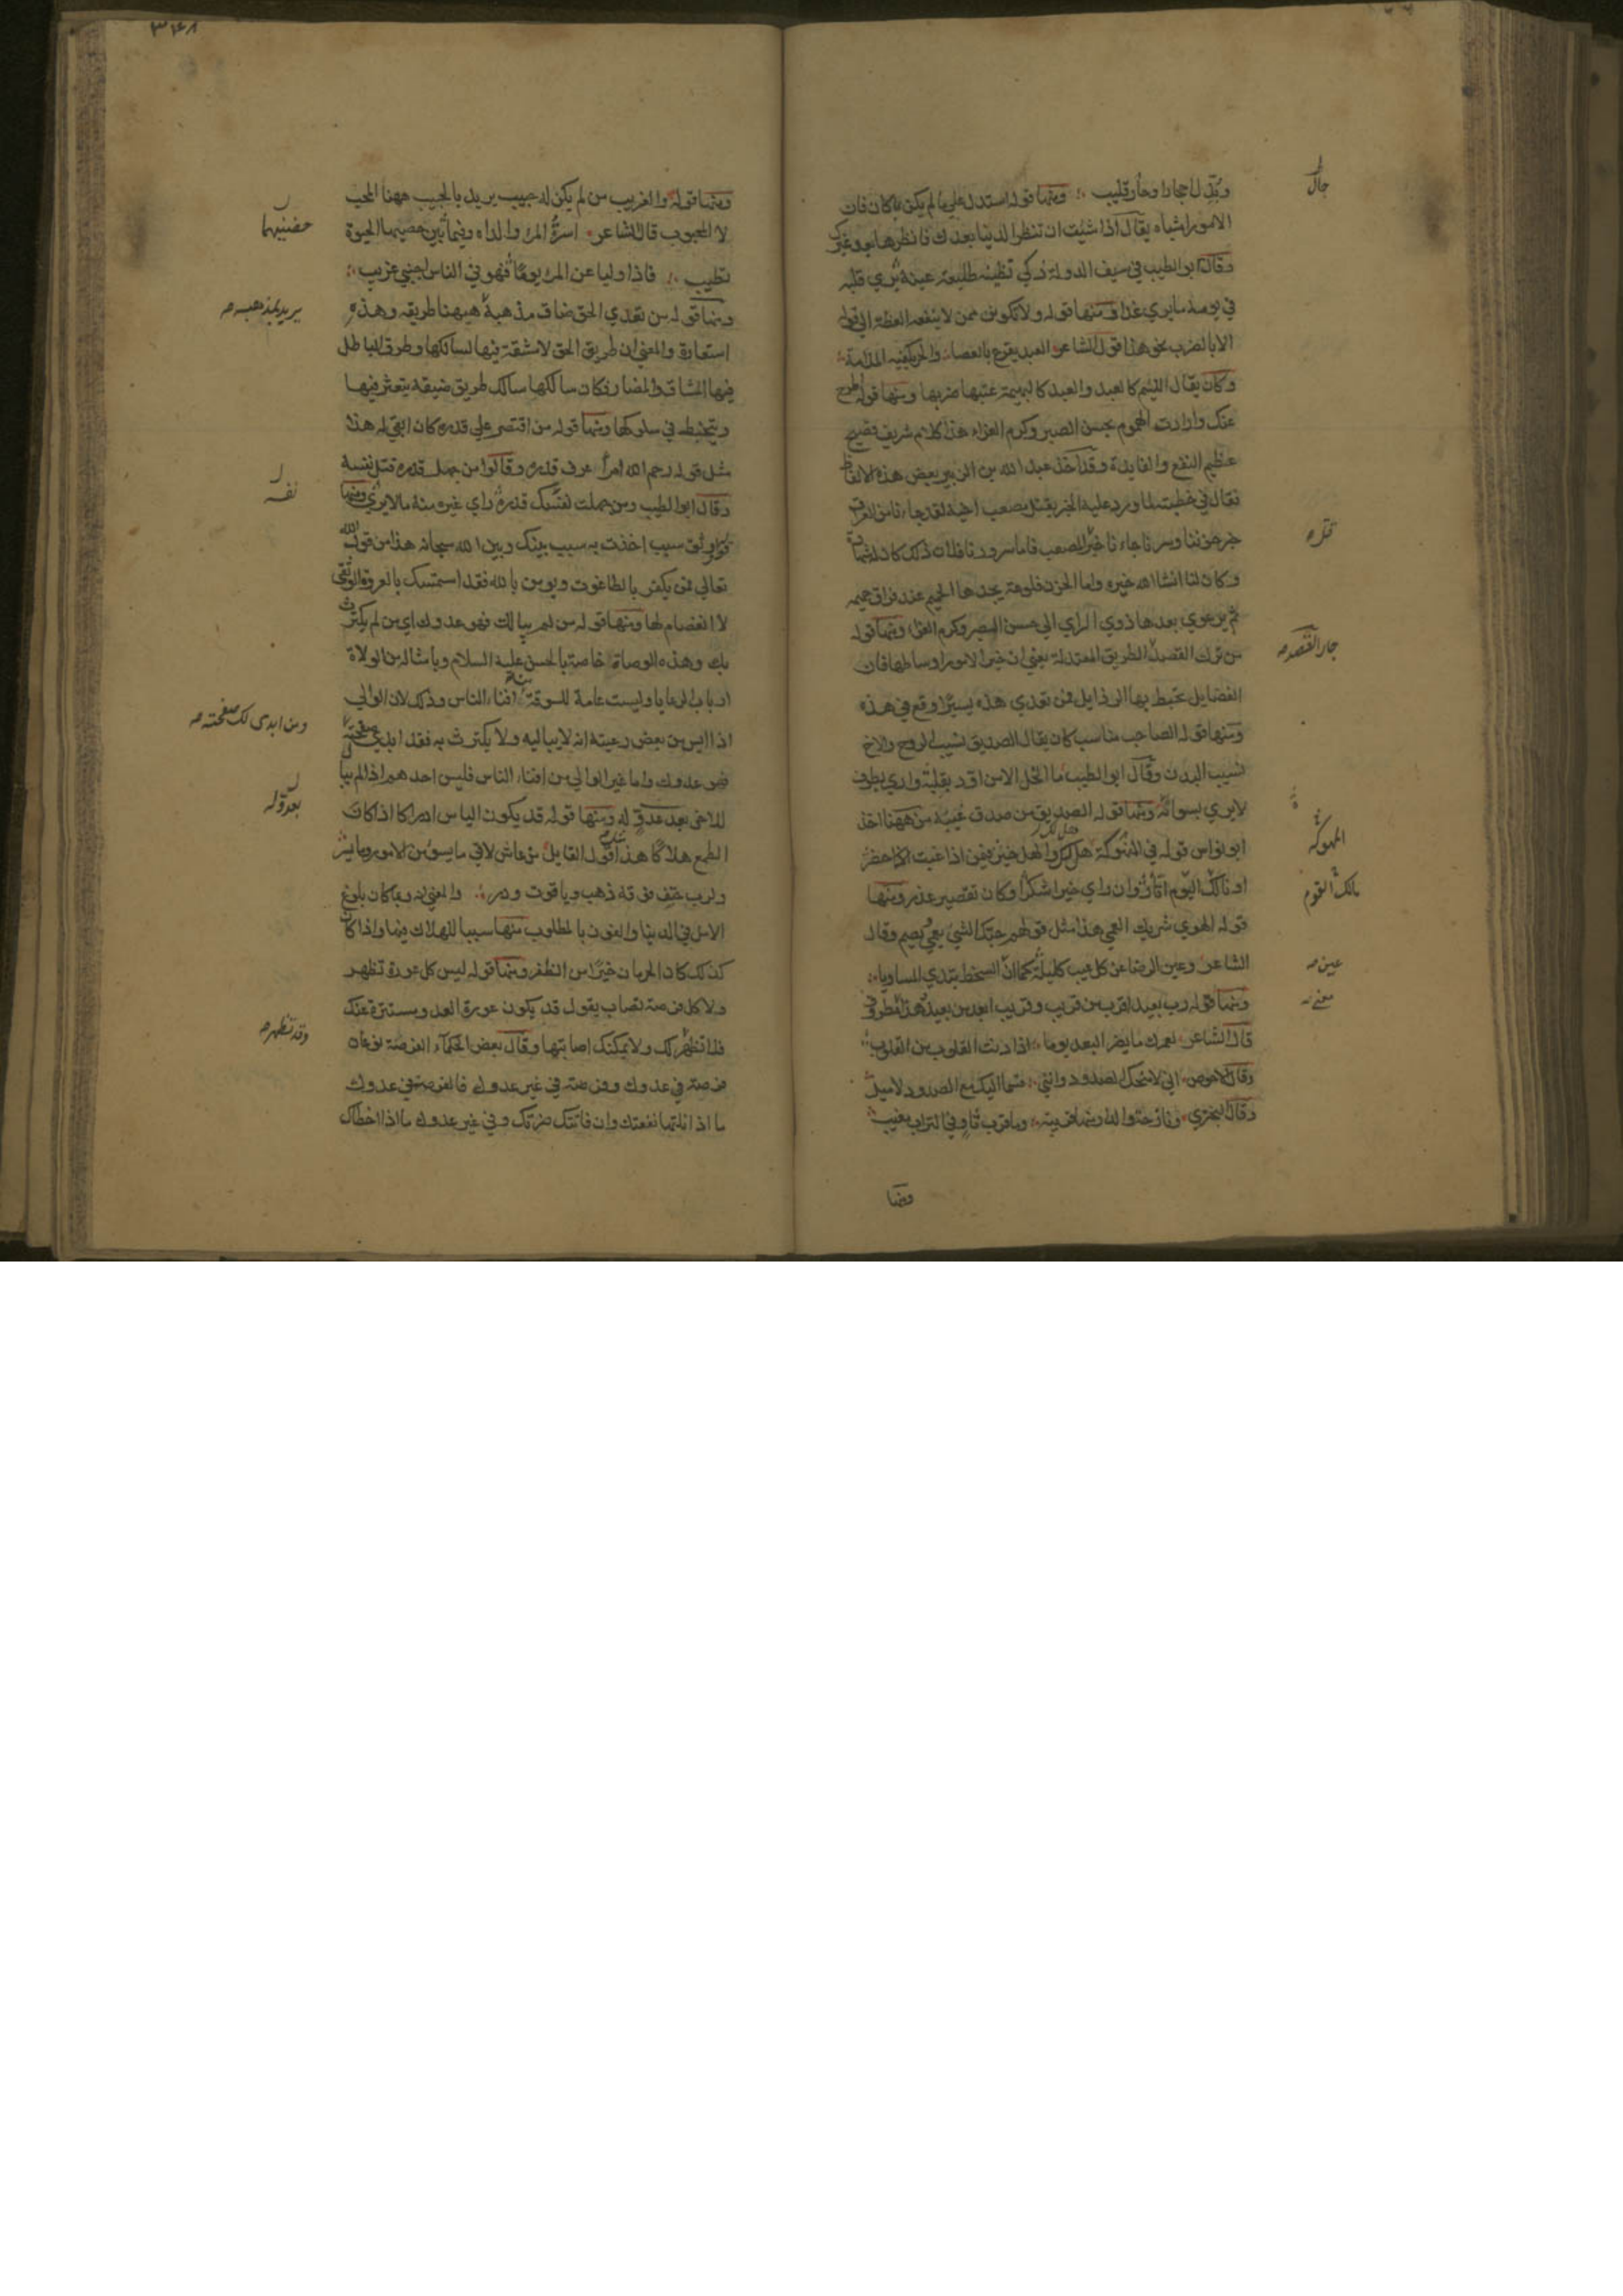 وبدل احجارا وجال قليب ومنها قوله استدل علي ما لم يكن بما كان فان
الامور اشباه يقال اذا شيت ان تنظر الدنيا بعدك فانظرها بعد غيرك
وقال ابو الطيب في سيف الدولة ذكي تظنيه طليعة عينه يري قلبه
في يومه ما يري غدا ومنها قوله ولا تكونن ممن لا ينفعه العظة الي قوله
الا بالضرب نحو هذا قول الشاعر العبد يقرع بالعصا والحر يكفيه الملامة
وكان يقال اللئيم كالعبد والعبد كالبهيمة عتبها ضربها ومنها قوله اطرح
عنك واردات الهموم بحسن الصبر وكرم العزاء هذا كلام شريف فصيح
عظيم النفع والفايدة وقد اخذ عبد الله بن الزبير بعض هذه الالفاظ
فقال في خطبته لما ورد عليه الخبر بقتل مصعب اخيه لقد جاءنا من العراق
خبر حزننا وسرنا جاءنا خبر المصعب فاما سرورنا فلان ذلك كان له شهادة
وكان لنا انشا الله خيره واما الحزن فلوعة يجدها الحميم عند فراق حميمه
ثم يرعوي بعدها ذوي الراي الي حسن الصبر وكرم العزاء ومنها قوله
من ترك القصد الطريق المعتدلة يعني ان خير الامور اوساطها فان
الفضايل تحيط بها الرذايل فمن تعدي هذه يسيرا وقع في هذه
ومنها قوله الصاحب مناسب كان يقال الصديق نسيب الروح والاخ
نسيب البدن وقال ابو الطيب ما الخل الا من اود بقلبه واري بطرف
لا يري بسوائه ومنها قوله الصديق من صدق غيبه من ههنا اخذ
ابو نواس قوله في المنهوكة هل لك والهل خبر فيمن اذا غبت حضر
او نالك اليوم اثار وان راي خيرا شكر او كان تقصير عذر ومنها
قوله الهوي شريك العمي هذا مثل قولهم حبك الشي يعمي ويصم وقال
الشاعر وعين الرضا عن كل عيب كليلة كما ان السخط يبدي المساويا
ومنها قوله رب بعيد اقرب من قريب وقريب ابعد من بعيد هذا مطروق
قال الشاعر لعمرك ما يضر البعد يوما اذا دنت القلوب من القلوب
وقال الاحوص اني لامنحك الصدود وانني قسما اليك مع الصدود لاميل
وقال البحتري ونازحة والدار منها قريبة وما قرب ثاو في التراب مغيب
ومنها
جال
قره
جار القصد
المنهوكة
نالك القوم
عين
معني
٣٤٨
ومنها قوله والغريب من لم يكن له حبيب يريد بالحبيب ههنا المحب
لا المحبوب قال الشاعر اسرة المرء والداه وفيما بين حضنيهما الحيوة
تطيب فاذا وليا عن المرء يوما فهو في الناس اجنبي غريب
ومنها قوله من تعدي الحق ضاق مذهبه ههنا طريقه وهذه
استعارة والمعني ان طريق الحق لا مشقة فيها لسالكها وطرق الباطل
فيها المشاق والمضار فكان سالكها سالك طريق ضيقة يتعثر فيها
ويتخبط في سلوكها ومنها قوله من اقتصر علي قدره كان ابقي له هذا
مثل قوله رحم الله امرأ عرف قدره وقالوا من جهل قدره قتل نفسه
وقال ابو الطيب ومن جهلت نفسه قدره راي غيره منه ما لا يري ومنها
قوله اوثق سبب اخذت به سبب بينك وبين الله سبحانه هذا من قول الله
تعالي فمن يكفر بالطاغوت ويومن بالله فقد استمسك بالعروة الوثقي
لا انفصام لها ومنها قوله من لم يبالك فهو عدوك اي من لم يكترث
بك وهذه الوصاة خاصة بالحسن عليه السلام وبامثاله من الولاة
ارباب الرعايا وليست عامة للسوقة افناء الناس وذلك لان الوالي
اذا ايس من بعض رعيته انه لا يباليه ولا يكترث به فقد ابدي صفحته
فهو عدوك واما غير الوالي من افناء الناس فليس احدهم اذا لم يبا
للاخر بعد عدو له ومنها قوله قد يكون الياس ادراكا اذا كان
الطمع هلاكا هذا مثل قول القايل من عاش لاقي ما يسوء من الامور وما يسر
ولرب حتف فوقه ذهب وياقوت ودر والمعني انه ربما كان بلوغ
الامل في الدنيا والفوز بالمطلوب منها سببا للهلاك فيها واذا كان
كذلك كان الحرمان خيرا من الظفر ومنها قوله ليس كل عورة تظهر
ولا كل فرصة تصاب يقول قد يكون عورة العدو مستترة عنك
فلا تظهر لك ولا يمكنك اصابتها وقال بعض الحكماء الفرصة نوعان
فرصة في عدوك وفرصة في غير عدوك فالفرصة في عدوك
ما اذا نلتها نفعتك وان فاتتك ضرتك وفي غير عدوك ما اذا اخطاك
حضنيهما
يريد بمذهبه
نفسه
ومن ابدى لك صفحته
بعدو له
وقد تظهر